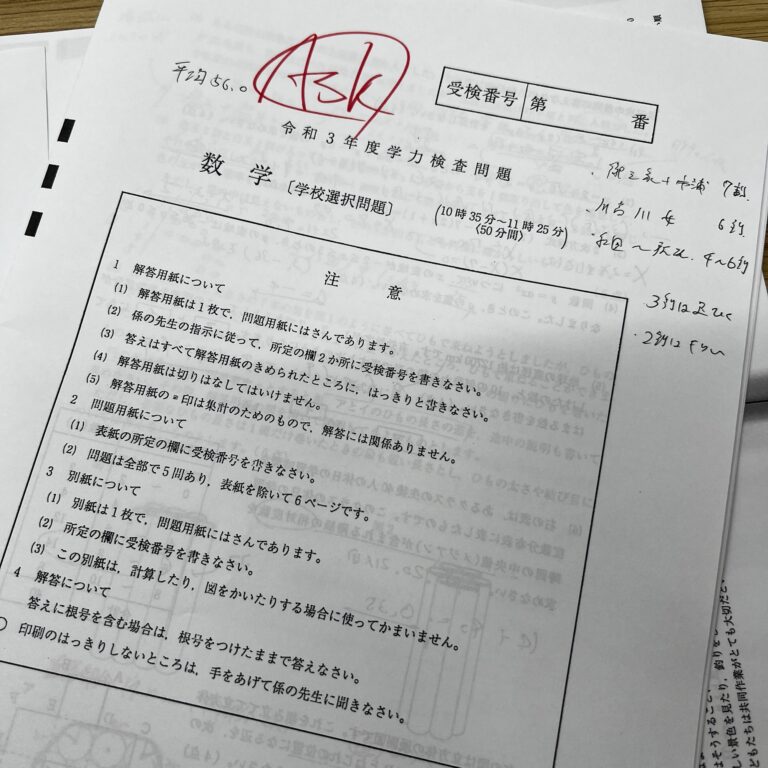 平均56.0
Ask
受検番号 第 番
令和3年度学力検査問題
数学〔学校選択問題〕
(10時35分~11時25分)
〈50分間〉
7割
6割
4~6割
注意
1 解答用紙について
(1) 解答用紙は1枚で,問題用紙にはさんであります。
(2) 係の先生の指示に従って,所定の欄2か所に受検番号を書きなさい。
(3) 答えはすべて解答用紙のきめられたところに,はっきりと書きなさい。
(4) 解答用紙は切りはなしてはいけません。
(5) 解答用紙の*印は集計のためのもので,解答には関係ありません。
2 問題用紙について
(1) 表紙の所定の欄に受検番号を書きなさい。
(2) 問題は全部で5問あり,表紙を除いて6ページです。
3 別紙について
(1) 別紙は1枚で,問題用紙にはさんであります。
(2) 所定の欄に受検番号を書きなさい。
(3) この別紙は,計算したり,図をかいたりする場合に使ってかまいません。
4 解答について
答えに根号を含む場合は,根号をつけたままで答えなさい。
○ 印刷のはっきりしないところは,手をあげて係の先生に聞きなさい。
はそうすること,
しい景色を見たり,釣りをし
どもたちは共同作業がとても大切だと,